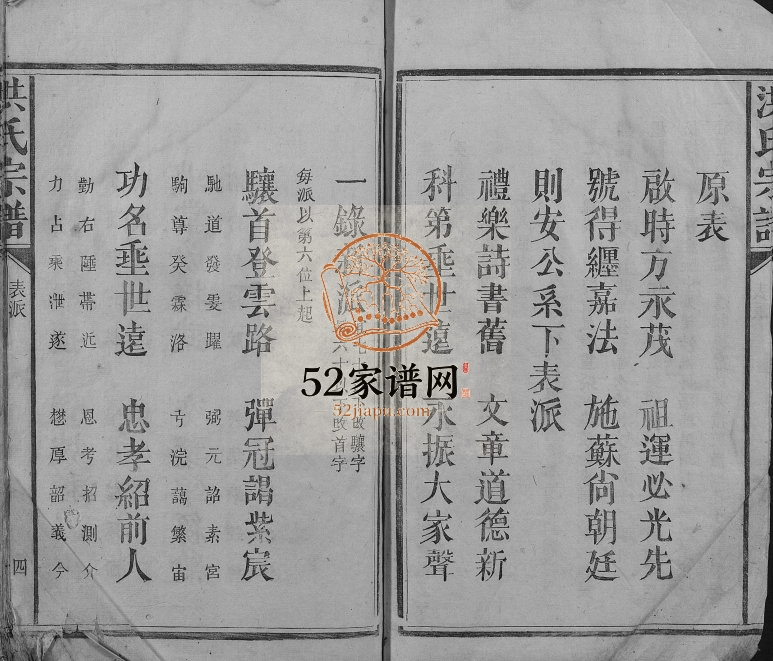 洪氏宗譜
原表
啟時方永茂 祖運必光先
號得纒嘉法 施蘇尙朝廷
則安公系下表派
禮樂詩書舊 文章道德新
科第垂世遠 永振大家聲
一錄 派
改驤字
六十 改首字
每派以第六位上起
驤首登雲路 彈冠謁紫宸
馳道發雯躍 弼元詔素宮
駒尊癸霖洛 浣藹縈宙
功名垂世遠 忠孝紹前人
勤右 帶近 恩考招測介
力占乘泄遂 懋厚韶義今
洪氏宗譜
表派
四
52家谱网
52jiapu.com